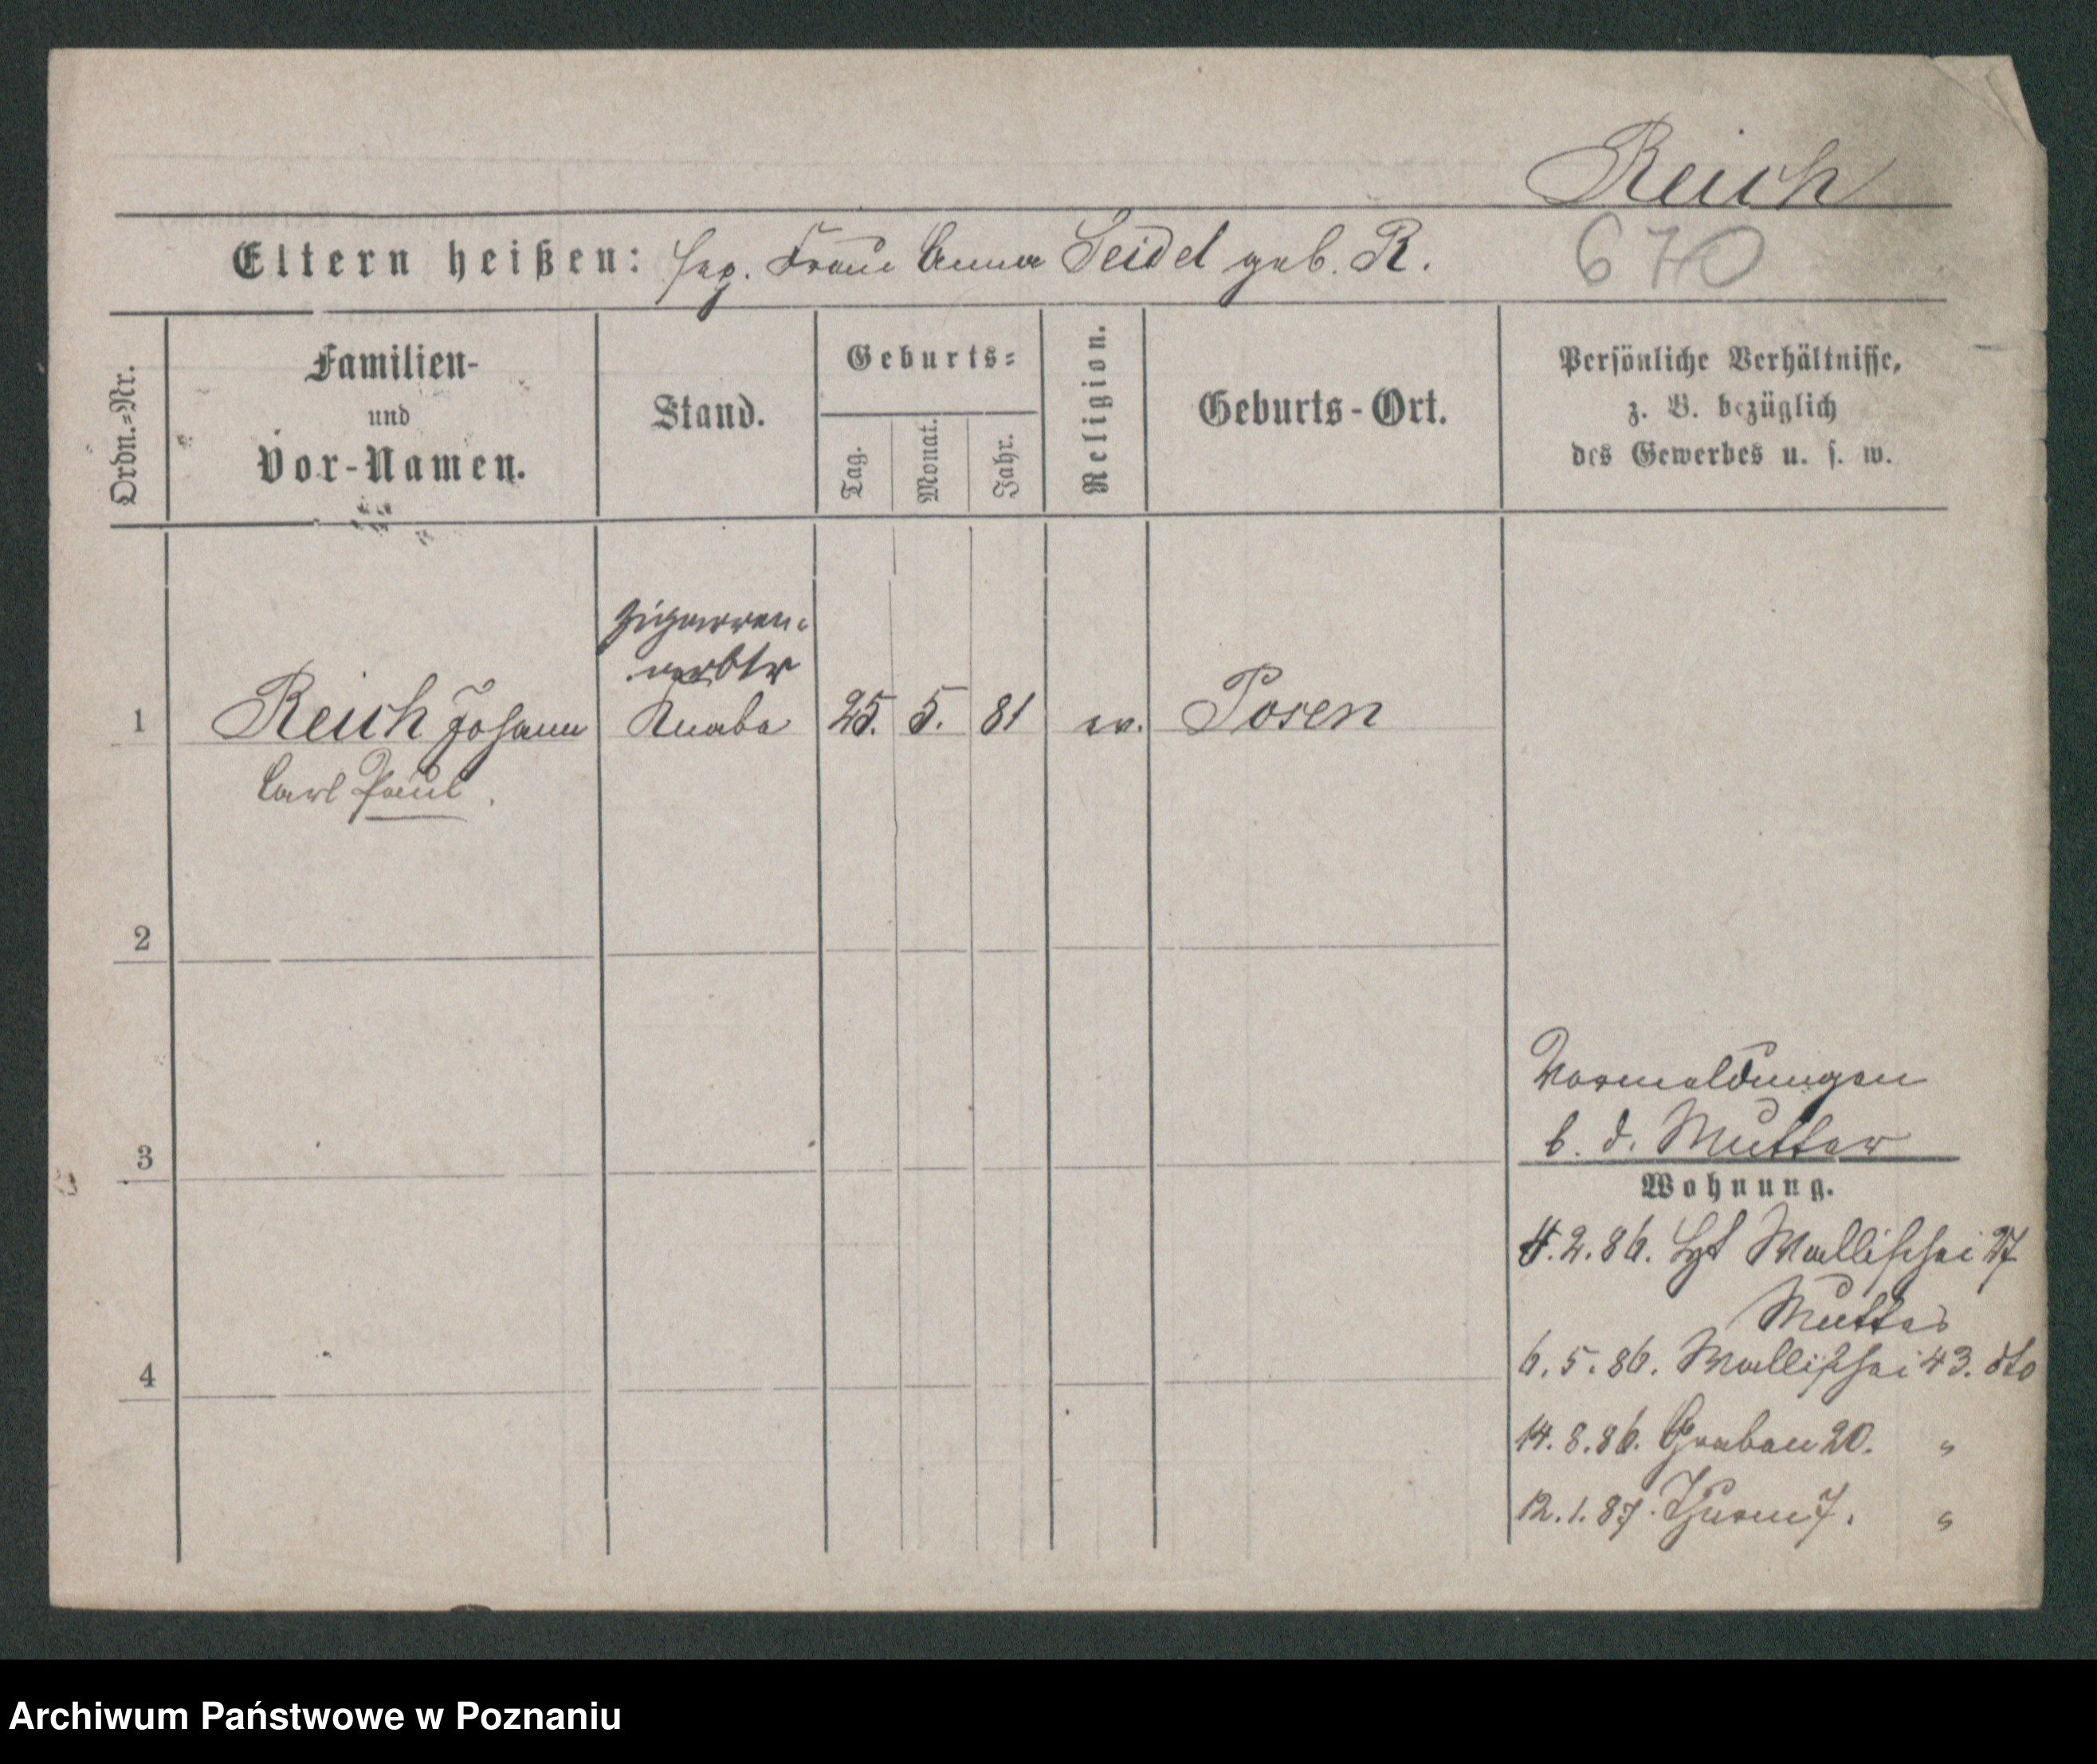 Reich
Eltern heißen: sep. Frau Anna Seidel geb. R.
670
Ordn.=Nr.
Familien-
und
Vor-Namen.
Stand.
Geburts=
Tag.
Monat.
Jahr.
Religion.
Geburts-Ort.
Persönliche Verhältnisse,
z. B. bezüglich
des Gewerbes u. s. w.
Zigarren-
arbtr
1 Reich Johann Knabe 25. 5. 81 ev. Posen
Carl Paul.
2
3
4
Vormeldungen
b. d. Mutter
Wohnung.
4.2.86. Wallischei 27
Mutter
6.5.86. Wallischei 43. dto
14.8.86. Graben 20. "
12.1.87. Thurm 7. "
Archiwum Państwowe w Poznaniu